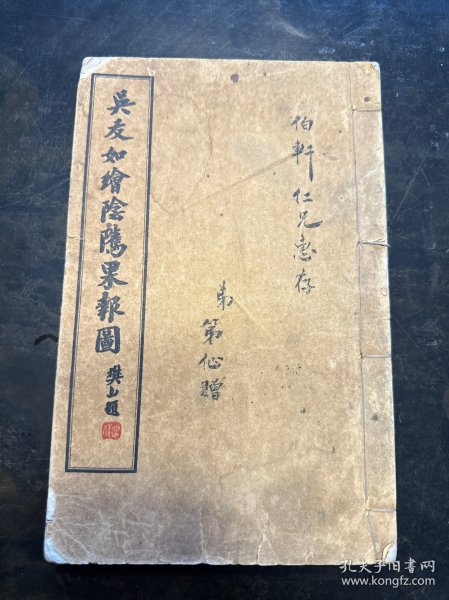 吳友如繪陰隲果報圖
樊山題
伯軒仁兄惠存
弟
贈
孔夫子旧书网
www.kongfz.com